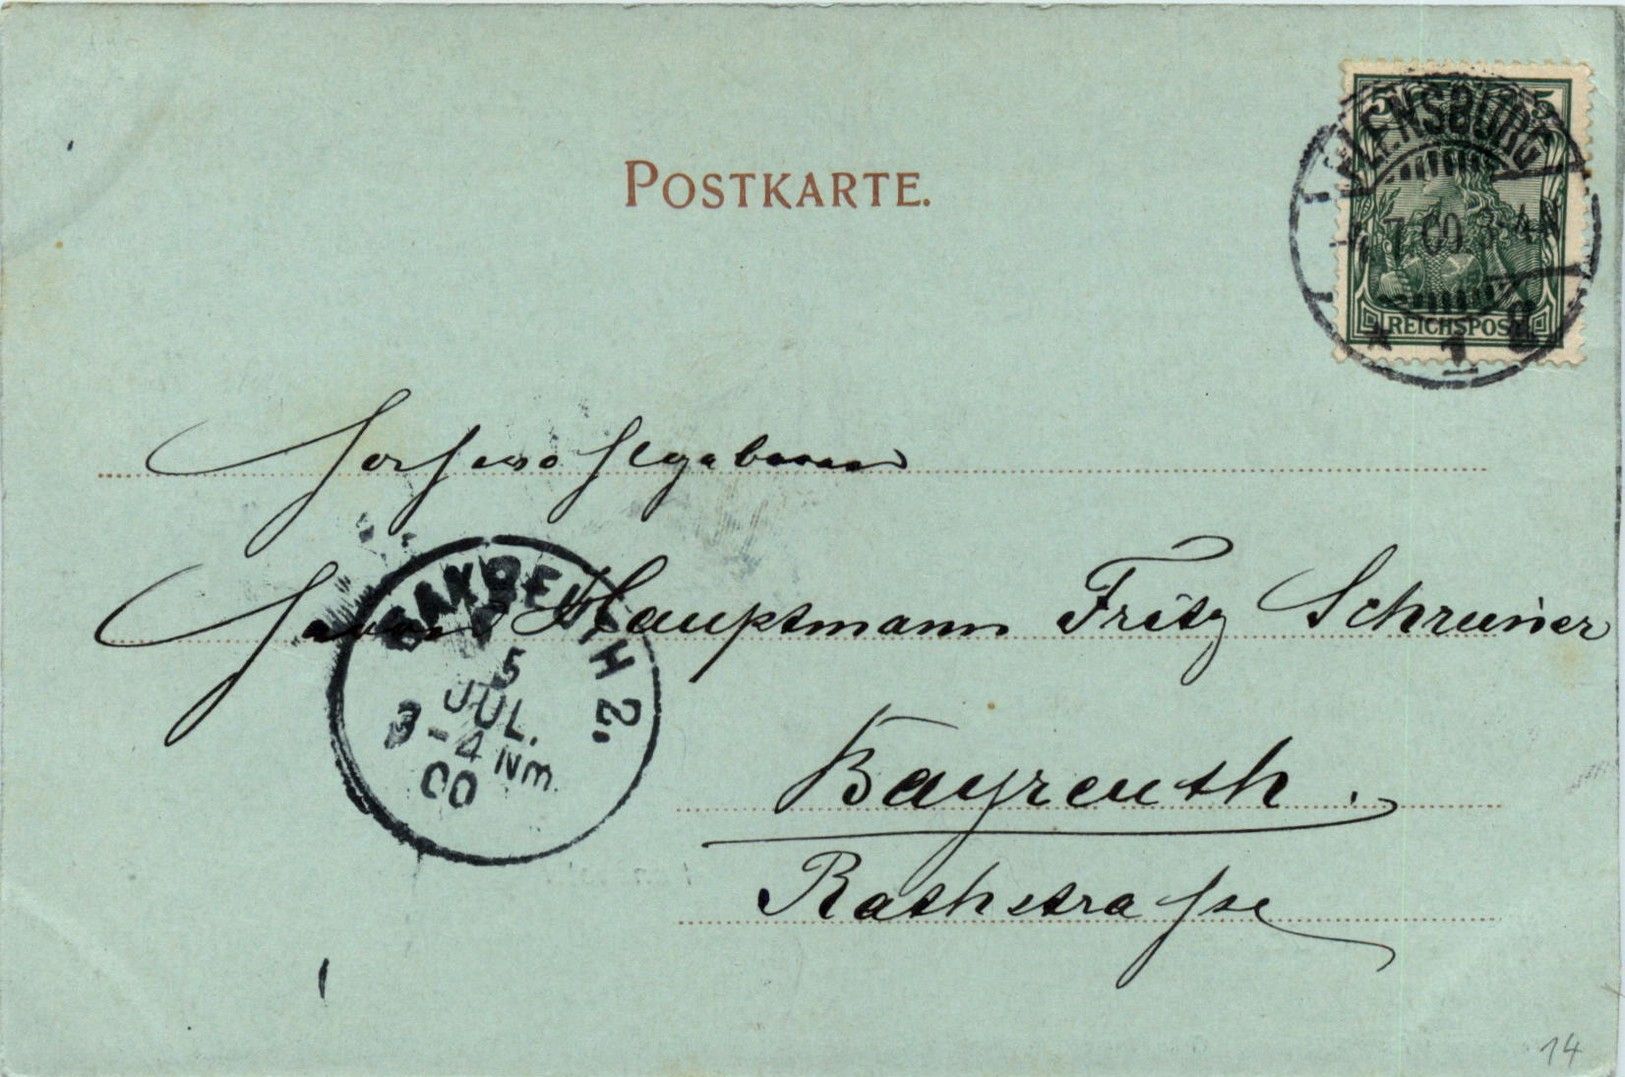 POSTKARTE.
5 5
FLENSBURG
4.7.00.3-4N
REICHSPOST
* 1 g
Hochwohlgeboren
Herrn Hauptmann Fritz Schreiner
BAYREUTH 2.
5
JUL.
3-4 Nm.
00
Bayreuth.
Rathstraße
14